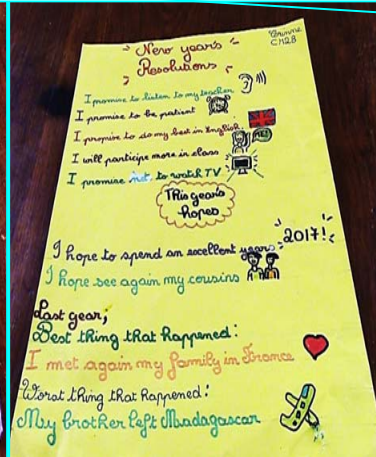 New year's
Resolutions
CM2B
I promise to listen to my teacher
I promise to be patient
I promise to do my best in English
I will participe more in class
I promise not to watch TV
This year's
hopes
I hope to spend an excellent years 2017!
I hope see again my cousins
Last year,
Best thing that happened:
I met again my family in France
Worst thing that happened:
My brother left Madagascar